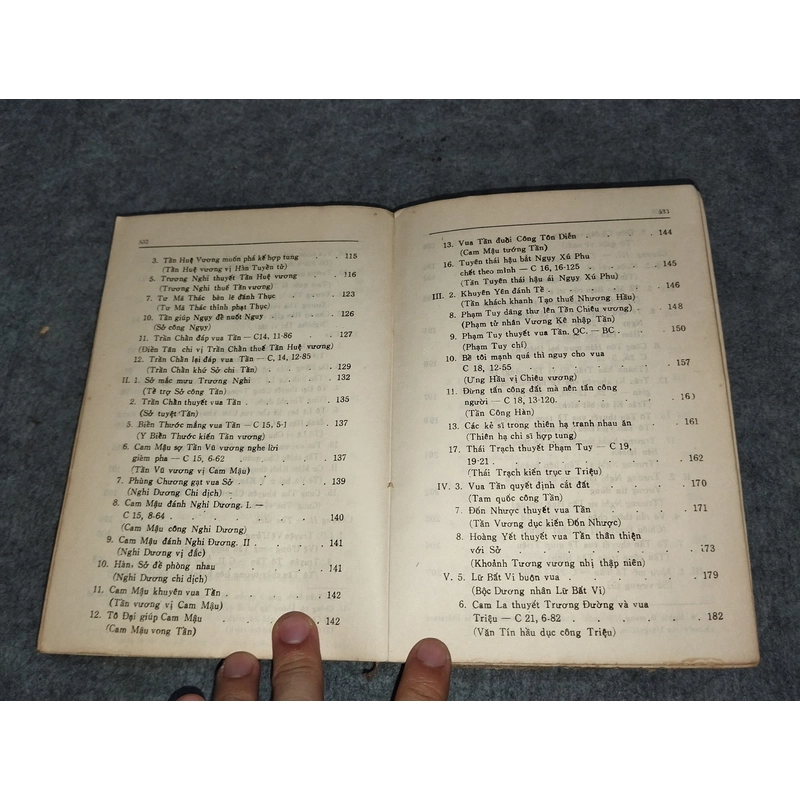 532
3. Tần Huệ Vương muốn phá kế hợp tung . 115
(Tần Huệ vương vị Hàn Tuyền tử)
5. Trương Nghi thuyết Tần Huệ vương . 116
(Trương Nghi thuế Tần Huệ vương)
7. Tư Mã Thác bàn lẽ đánh Thục . . . 123
(Tư Mã Thác thỉnh phạt Thục)
10. Tần giúp Ngụy để nuốt Ngụy . . . 126
(Sở công Ngụy)
11. Trần Chần đáp vua Tần — C14, 11-86 . 127
(Điền Tân chi vị Trần Chần thuế Tần Huệ vương)
12. Trần Chần lại đáp vua Tần — C, 14, 12-85
(Trần Chần khứ Sở chi Tần) . . . 129
II. 1. Sở mắc mưu Trương Nghi . . . 132
(Tề trợ Sở công Tần)
2. Trần Chần thuyết vua Tần . . . 135
(Sở tuyệt Tần)
5. Biền Thước mắng vua Tần — C 15, 5-1 . 137
(Y Biền Thước kiến Tần vương)
6. Cam Mậu sợ Tần Vũ vương nghe lời
gièm pha — C 15, 6-62 . . . 137
(Tần Vũ vương vị Cam Mậu)
7. Phùng Chương gạt vua Sở . . . 139
(Nghi Dương Chi dịch)
8. Cam Mậu đánh Nghi Dương. I. —
C 15, 8-64 . . . 140
(Cam Mậu công Nghi Dương)
9. Cam Mậu đánh Nghi Dương. II . . 141
(Nghi Dương vị đắc)
10. Hàn, Sở đề phòng nhau . . . 141
(Nghi Dương chi dịch)
11. Cam Mậu khuyên vua Tần . . . 142
(Tần vương vị Cam Mậu)
12. Tô Đại giúp Cam Mậu . . . 142
(Cam Mậu vong Tần)
533
13. Vua Tần đuổi Công Tôn Diễn . . . 144
(Cam Mậu tướng Tần)
16. Tuyên thái hậu bắt Ngụy Xú Phu
chết theo mình — C 16, 16-125 . . . 145
(Tần Tuyên thái hậu ái Ngụy Xú Phu)
III. 2. Khuyên Yên đánh Tề . . . 146
(Tần khách khanh Tạo thuế Nhương Hầu)
8. Phạm Tuy dâng thư lên Tần Chiêu vương) . 148
(Phạm tử nhân Vương Kê nhập Tần)
9. Phạm Tuy thuyết vua Tần. QC. — BC . . 150
(Phạm Tuy chí)
10. Bề tôi mạnh quá thì nguy cho vua
C 18, 12-55 . . . 157
(Ưng Hầu vị Chiêu vương)
11. Đừng tấn công đất mà nên tấn công
người — C 18, 13-120. . . .
(Tần Công Hàn)
13. Các kẻ sĩ trong thiên hạ tranh nhau ăn . 161
(Thiên hạ chi sĩ hợp tung)
17. Thái Trạch thuyết Phạm Tuy — C 19,
19-21 . . . 162
(Thái Trạch kiến trục ư Triệu)
IV. 3. Vua Tần quyết định cắt đất . . . 170
(Tam quốc công Tần)
7. Đốn Nhược thuyết vua Tần . . . 171
(Tần Vương dục kiến Đốn Nhược)
8. Hoàng Yết thuyết vua Tần thân thiện
với Sở . . . 173
(Khoảnh Tương vương nhị thập niên)
V. 5. Lữ Bất Vi buôn vua . . . 179
(Bộc Dương nhân Lữ Bất Vi)
6. Cam La thuyết Trương Đường và vua
Triệu — C 21, 6-82 . . . 182
(Văn Tín hầu dục công Triệu)